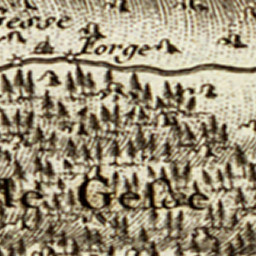 Gesse
Forge
de Gesse